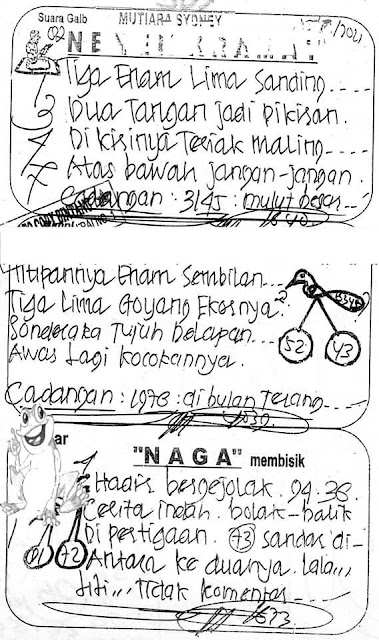 Suara Gaib
MUTIARA SYDNEY
Tiga Enam Lima Sanding....
Dua Tangan jadi pikiran.
Di kirinya Teriak maling....
Atas bawah jangan-jangan.
Cadangan: 3145: mulut besar...
Titipannya Enam Sembilan...
Tiga Lima Goyang Ekornya.
Tujuh Delapan...
Awas Lagi kocokannya.
52
43
Cadangan: 1978: di bulan Terang....
"NAGA" membisik
Hadir bergejolak. 94.38.
Cerita indah. bolak-balik
Di pertigaan. 73 sandar di-
Antara ke duanya. Lala,,,
Titi,,, Tidak komentar....
72